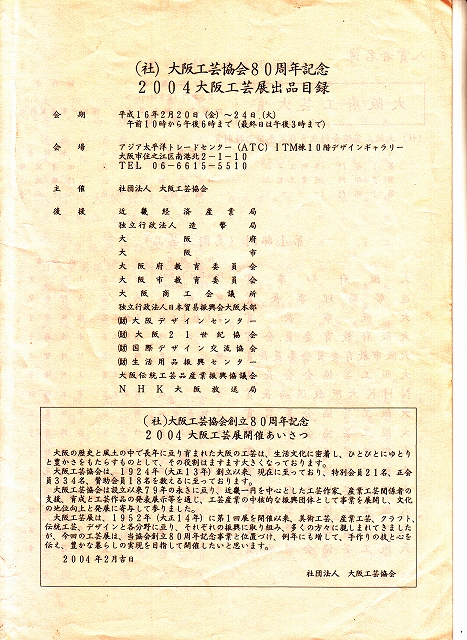 (社)大阪工芸協会80周年記念
2004大阪工芸展出品目録
会期 平成16年2月20日(金)~24日(火)
午前10時から午後6時まで(最終日は午後3時まで)
会場 アジア太平洋トレードセンター(ATC)ITM棟10階デザインギャラリー
大阪市住之江区南港北2-1-10
TEL 06-6615-5510
主催 社団法人 大阪工芸協会
後援 近畿経済産業局
独立行政法人造幣局
大阪府
大阪市
大阪府教育委員会
大阪市教育委員会
大阪商工会議所
独立行政法人日本貿易振興会大阪本部
㈶大阪デザインセンター
㈶大阪21世紀協会
㈶国際デザイン交流協会
㈶生活用品振興センター
大阪伝統工芸品産業振興協議会
NHK大阪放送局
(社)大阪工芸協会創立80周年記念
2004大阪工芸展開催あいさつ
大阪の歴史と風土の中で長年に亘り育まれた大阪の工芸は、生活文化に密着し、ひとびとにゆとり
と豊かさをもたらすものとして、その役割はますます大きくなっております。
大阪工芸協会は、1924年(大正13年)創立以来、現在に至っており、特別会員21名、正会
員334名、賛助会員18名を数えるに至っております。
大阪工芸協会は設立以来79年の永きに亘り、近畿一円を中心とした工芸作家、産業工芸関係者の
支援、育成と工芸作品の発表展示等を通じ、工芸産業の中核的な振興団体として事業を展開し、文化
の地位向上と発展に寄与して参りました。
大阪工芸展は、1952年(大正14年)に第1回展を開催以来、美術工芸、産業工芸、クラフト、
伝統工芸、デザインと各分野に亘り、それぞれの振興に取り組み、多くの方々に親しまれてきました
が、今回の工芸展は、当協会創立80周年記念事業と位置づけ、例年にも増して、手作りの技と心を
伝え、豊かな暮らしの実現を目指して開催したいと思います。
2004年2月吉日
社団法人 大阪工芸協会